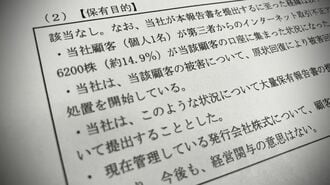 (2)【保有目的】
該当なし。なお、当社が本報告書を提出するに至った経緯は
・当社顧客(個人1名)が第三者からのインターネット取引不正
6200株(約14.9%)が当該顧客の口座に集まった状況にな
・当社は、当該顧客の被害について、原状回復により被害回
処置を開始している。
・当社は、このような状況について大量保有報告書の
いて提出することとした。
・現在管理している発行会社株式について、顧客
、今後も、経営関与の意思はない。